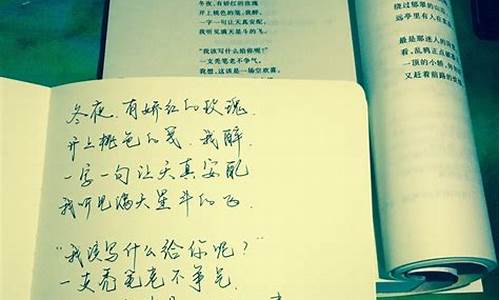 冬夜,有娇红的玫瑰
开上桃色的笺,我醉,
一字一句让天真安配,
我听见满天星斗的飞。
"我该写什么给你呢?"
一支秃笔老不争气,
我想,这该是一场空欢喜,
绕过郁翠的山
远亭里有人在
最是那迷人的
看,乱鸦正点破
一顶的小轿,
又赶着前路的
冬夜,有娇红的玫瑰,
开上桃色的笺,我醉,
一字一句让天真安配
我听见满天星斗的飞,
"我该写什么给你呢?"
一支秃笔老不争气,